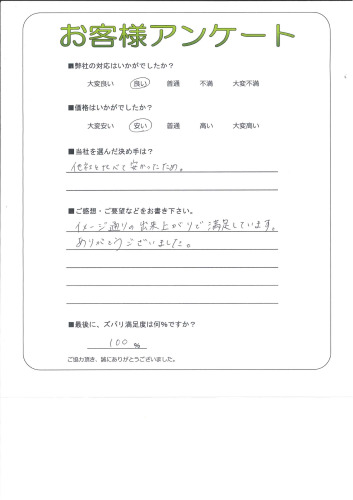 お客様アンケート
■弊社の対応はいかがでしたか？
大変良い 良い 普通 不満 大変不満
■価格はいかがでしたか？
大変安い 安い 普通 高い 大変高い
■当社を選んだ決め手は？
他社と比べて安かったため。
■ご感想・ご要望などをお書き下さい。
イメージ通りの出来上がりで満足しています。
ありがとうございました。
■最後に、ズバリ満足度は何％ですか？
100 %
ご協力頂き、誠にありがとうございました。